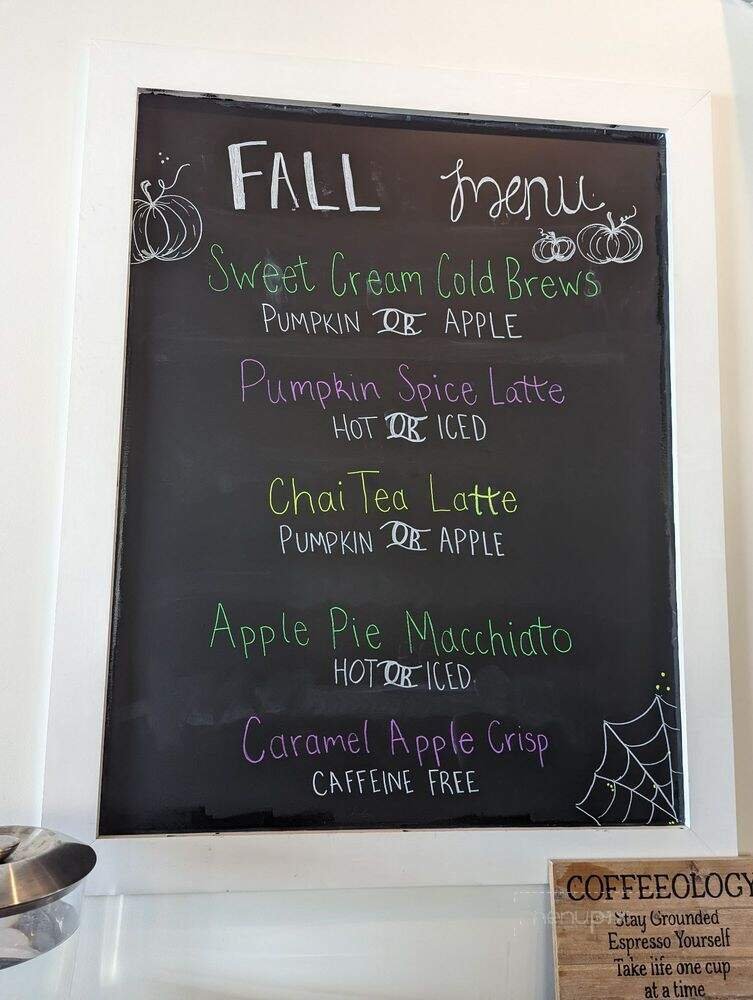 FALL menu
Sweet Cream Cold Brews
PUMPKIN OR APPLE
Pumpkin Spice Latte
HOT OR ICED
Chai Tea Latte
PUMPKIN OR APPLE
Apple Pie Macchiato
HOT OR ICED
Caramel Apple Crisp
CAFFEINE FREE
COFFEEOLOGY
Stay Grounded
Espresso Yourself
Take life one cup
at a time